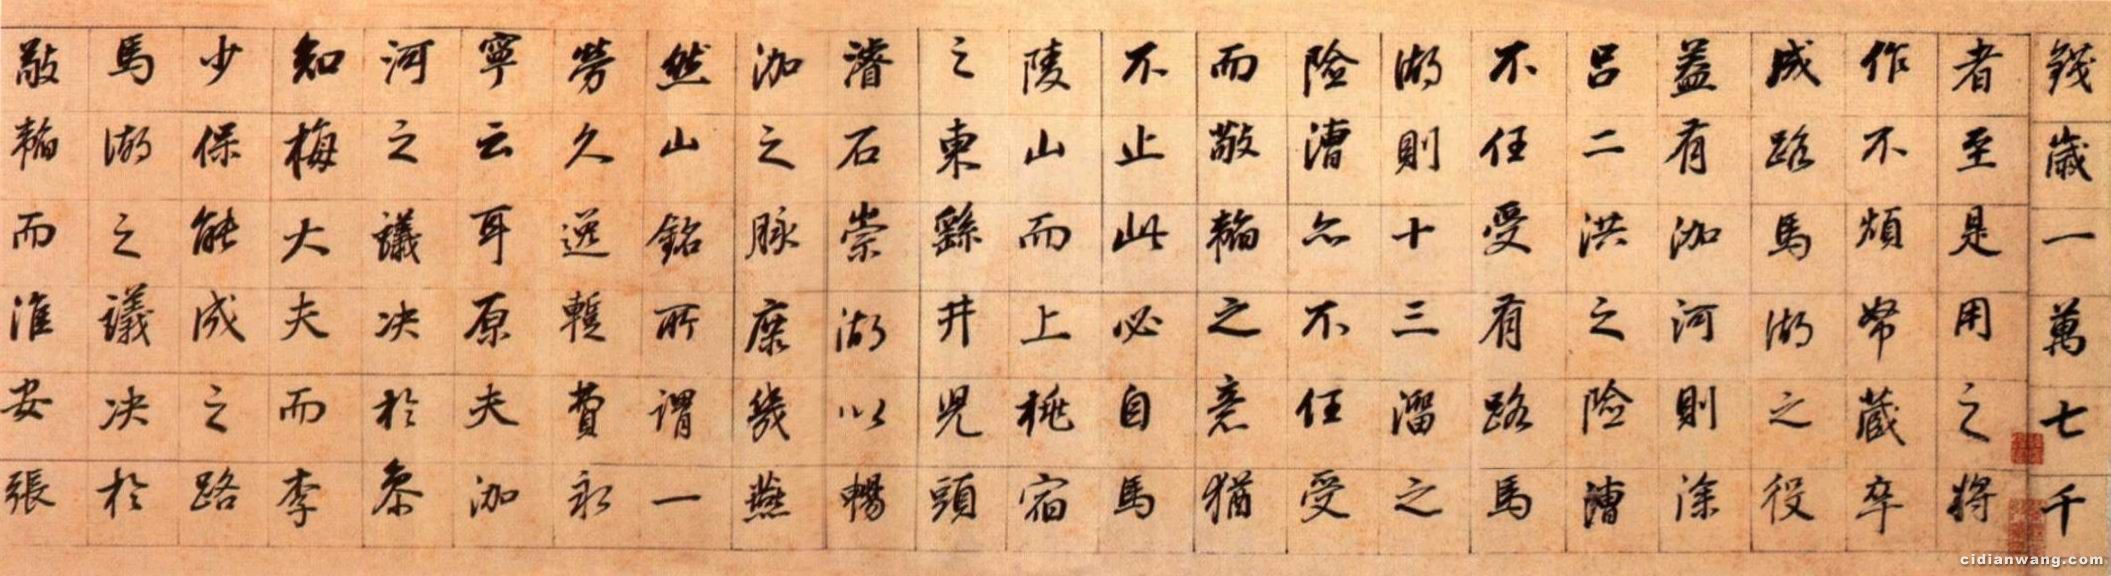 錢歲一萬七千
者至是用之將
作不煩帑藏卒
成路馬湖之役
蓋有泇河則涂
呂二洪之險漕
不任受有路馬
湖則十三溜之
險漕亦不任受
而敬輪之意猶
不止此必自馬
陵山而上桃宿
之東繇井兒頭
濬石崇湖以暢
泇之脉庶幾燕
然山銘所謂一
勞久逸暫費永
寧云耳原夫泇
河之議決於黎
知梅大夫而李
少保能成之路
馬湖之議決於
敬輪而淮安張
cidianwang.com